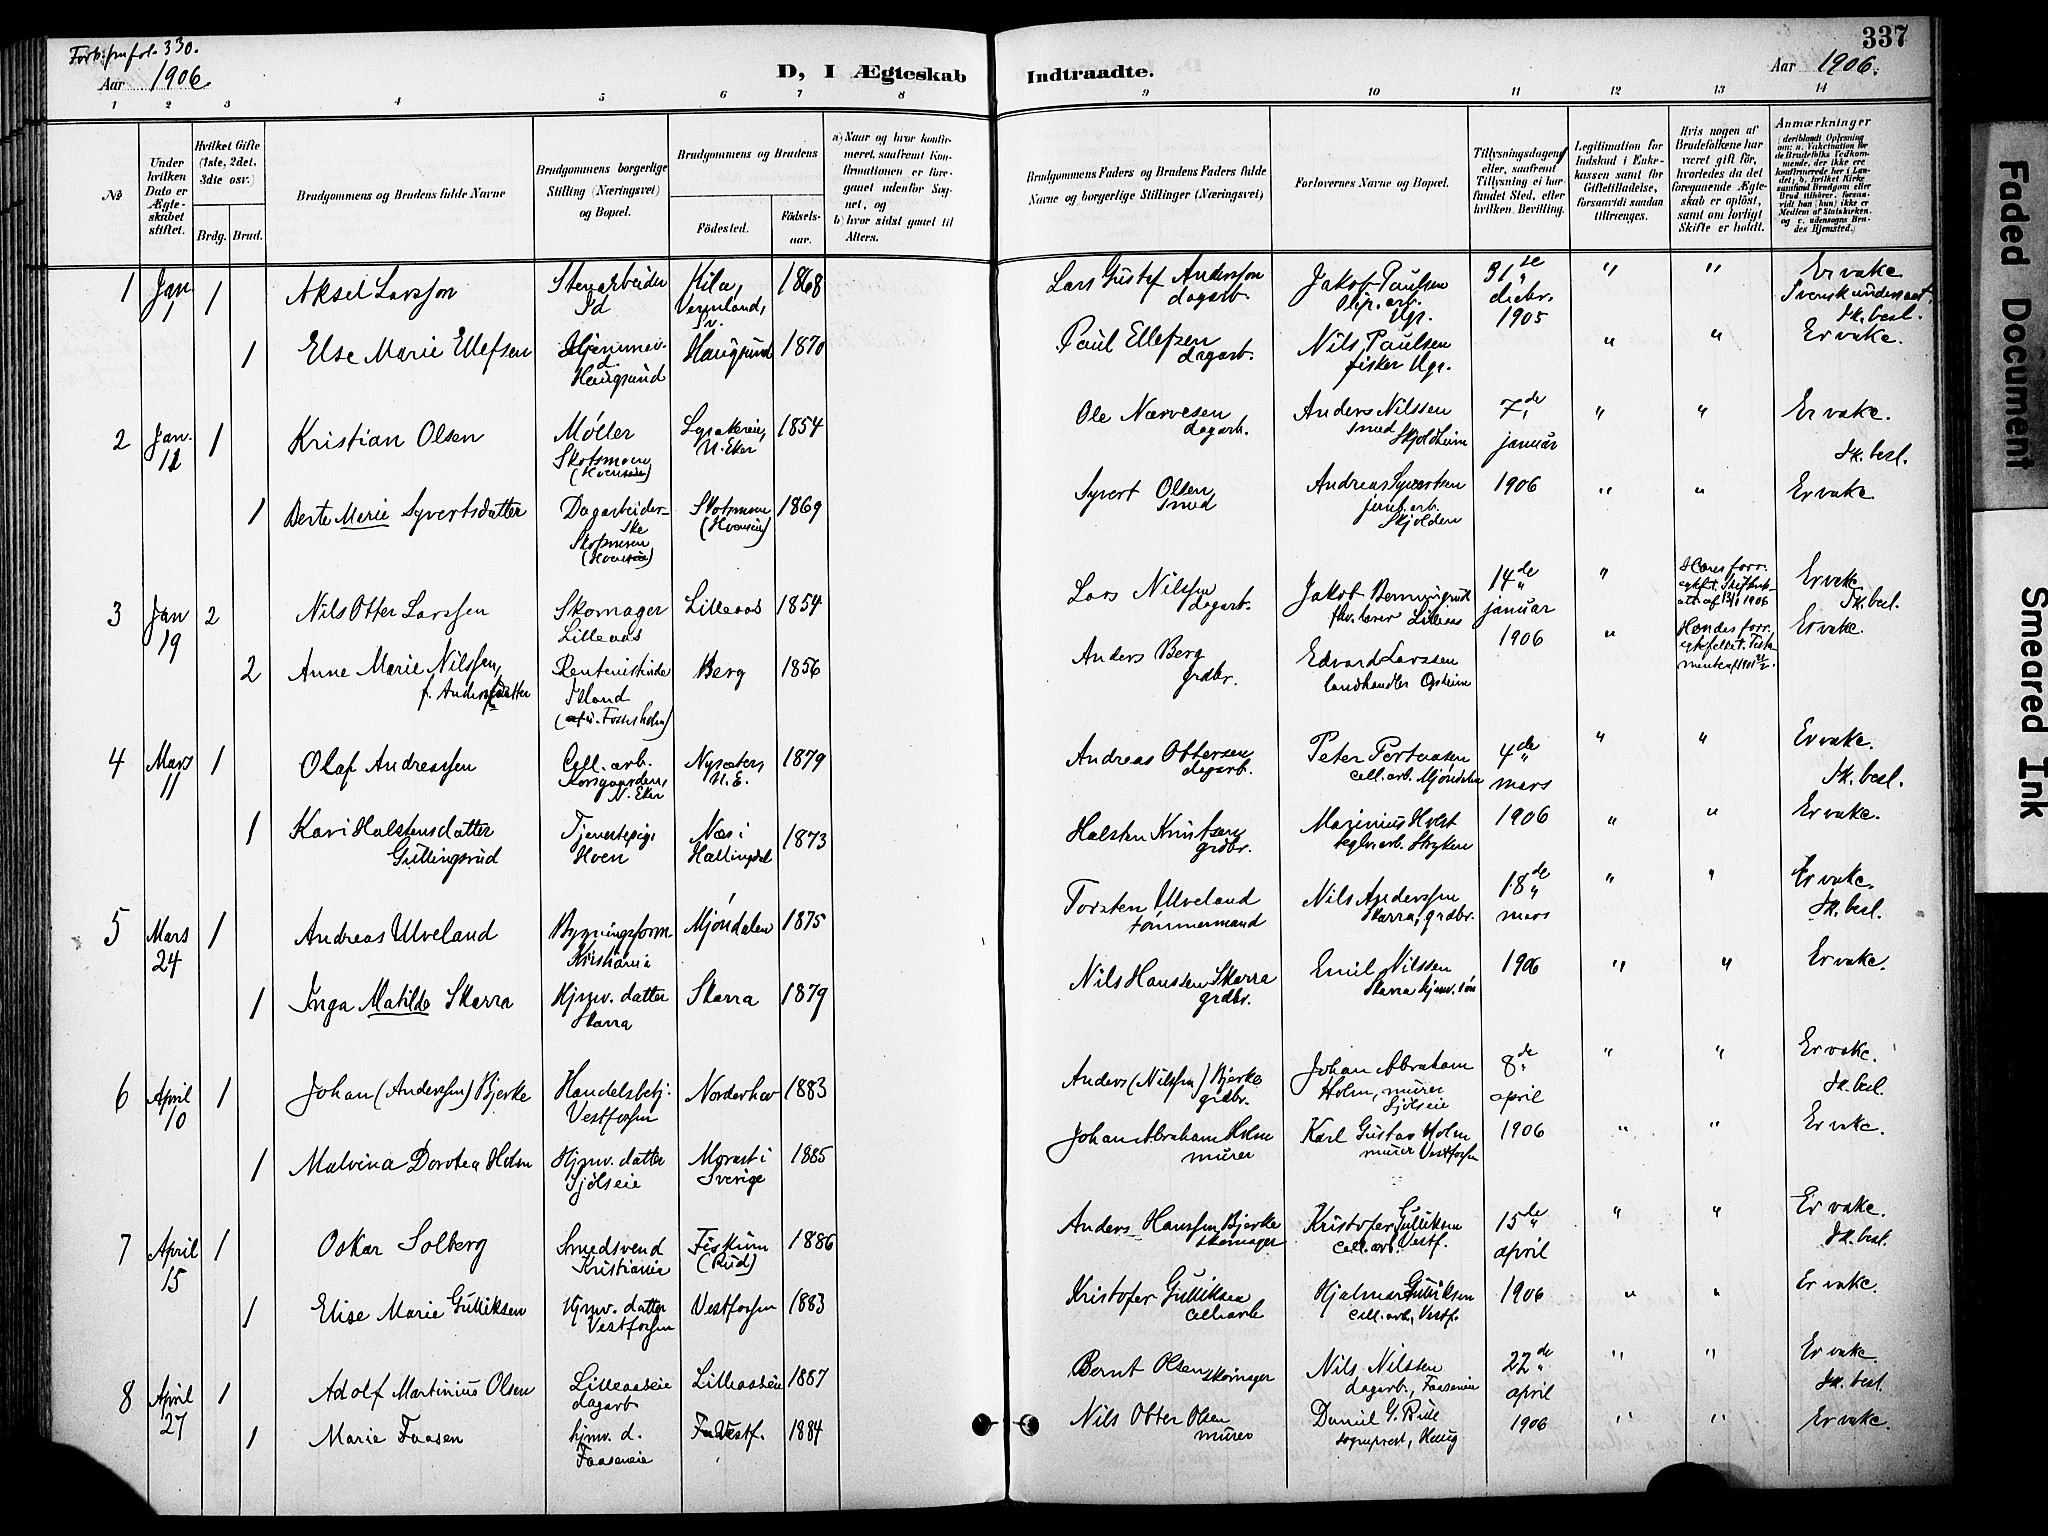 337
Forb: fra fol. 330.
Aar 1906.
D, I Ægteskab
Indtraadte.
Aar 1906.
1 2 3 4 5 6 7 8 9 10 11 12 13 14
No
Under hvilken Dato er Ægteskabet stiftet.
Hvilket Gifte (1ste, 2det, 3die osv.)
Brdg. Brud.
Brudgommens og Brudens fulde Navne
Brudgommens borgerlige Stilling (Næringsvei) og Bopæl.
Brudgommens og Brudens
Födested.
Födselsaar.
a) Naar og hvor konfirmeret, saafremt Konfirmationen er foregaaet udenfor Sognet, og
b) hvor sidst gaaet til Alters.
Brudgommens Faders og Brudens Faders fulde Navne og borgerlige Stillinger (Næringsvei)
Forlovernes Navne og Bopæl.
Tillysningsdagene eller, saafremt Tillysning ei har fundet Sted, efter hvilken Bevilling.
Legitimation for Indskud i Enkekassen samt for Giftetilladelse, forsaavidt saadan tiltrænges.
Hvis nogen af Brudefolkene har været gift för, hvorledes da det foregaaende Ægteskab er oplöst, samt om lovligt Skifte er holdt.
Anmærkninger
(deriblandt Oplysning om: a. Vakcination for de Brudefolks Vedkommende, der ikke ere konfirmerede her i Landet; b. hvilket Kirkesamfund Brudgom eller Brud tilhörer, forsaavidt han (hun) ikke er Medlem af Statskirken, og c. udensogns Brudes Hjemsted.)
1 Jan 1 1 Aksel Larsson Stenarbeider Id Kila, Vermland, Sv. 1868 Lars Gustaf Andersson dagarb. Jakob Paulsen Ugr. 31te decbr. 1905 " " Er vakc. Svensk undersaat. Sk. besl.
1 Else Marie Ellefsen Hjemmev. d. Haugsund Haugsund 1870 Paul Ellefsen dagarb. Nils Paulsen fisker Ugr. " " Er vakc.
2 Jan. 12 1 Kristian Olsen Møller Skotsmoen (Hoenseie) N. Eker 1854 Ole Narvesen dagarb. Anders Nilssen smed Skjoldheim 7de januar " " Er vakc. Sk. besl.
1 Berte Marie Syvertsdatter Dagarbeiderske Skotsmoen (Hoenseie) Skotsmoen (Hoenseie) 1869 Syvert Olsen smed Andreas Syvertsen jernb. arb. Skjolden 1906 " " Er vakc.
3 Jan 19 2 Nils Otter Larssen Skomager Lilleaas Lilleaas 1854 Lars Nilssen dagarb. Jakob Lilleaas 14de januar " Hans forr. egtef. Skiftereatt. af 13/1 1906 Er vakc. Sk. besl.
2 Anne Marie Nilssen, f. Andersdatter Berg 1856 Anders Berg grdbr. Edvard Larssen landhandler Opheim 1906 " Hendes forr. egtefelle Er vakc.
4 Mars 11 1 Olaf Andreassen Cell. arb. Korsgaarden, N. Eker Nysæter, N. E. 1879 Andreas Ottersen dagarb. Peter cell. arb. Mjøndalen 4de mars " " Er vakc. Sk. besl.
1 Kari Halstensdatter Gullingsrud Tjenestepige Hoen Næs i Hallingdal 1873 Halsten Knutsen grdbr. Marinius teglv. arb. Stryken 1906 " " Er vakc.
5 Mars 24 1 Andreas Ulveland Bygningsform. Kristiania Mjøndalen 1875 Torsten Ulveland tømmermand Nils Anderssen Skarra, grdbr. 18de mars " " Er vakc. Sk. besl.
1 Inga Matilde Skarra Hjmv. datter Skarra Skarra 1879 Nils Hanssen Skarra grdbr. Emil Nilssen Skarra hjmv. søn 1906 " " Er vakc.
6 April 10 1 Johan (Anderssen) Bjerke Handelsbetj. Vestfossen Norderhov 1883 Anders (Nilssen) Bjerke grdbr. Johan Abraham Holm, murer Sjølseie 8de april " " Er vakc. Sk. besl.
1 Malvina Dorotea Holm Hjmv. datter Sjølseie Morast i Sverige 1885 Johan Abraham Holm murer Karl Gustav Holm murer Vestfossen 1906 " " Er vakc.
7 April 15 1 Oskar Solberg Smedsvend Kristiania Fiskum (Rud) 1886 Anders Hanssen Bjerke skomager Kristofer Gulliksen cell. arb. Vestf. 15de april " " Er vakc. Sk. besl.
1 Elise Marie Gulliksen Hjmv. datter Vestfossen Vestfossen 1883 Kristofer Gulliksen cell. arb. Hjalmar Gulliksen cell. arb., Vestf. 1906 " " Er vakc.
8 April 27 1 Adolf Martinius Olsen Lilleaaseie dagarb. Lilleaaseie 1887 Bernt Olsen skomager Nils Nilssen dagarb., Faaseneie 22de april " " Er vakc. Sk. besl.
1 Marie Faasen hjmv. d. Faaseneie Vestf. 1884 Nils Otter Olsen murer Daniel G. sogneprest, Haug 1906 " " Er vakc.
Faded Document
Smeared Ink